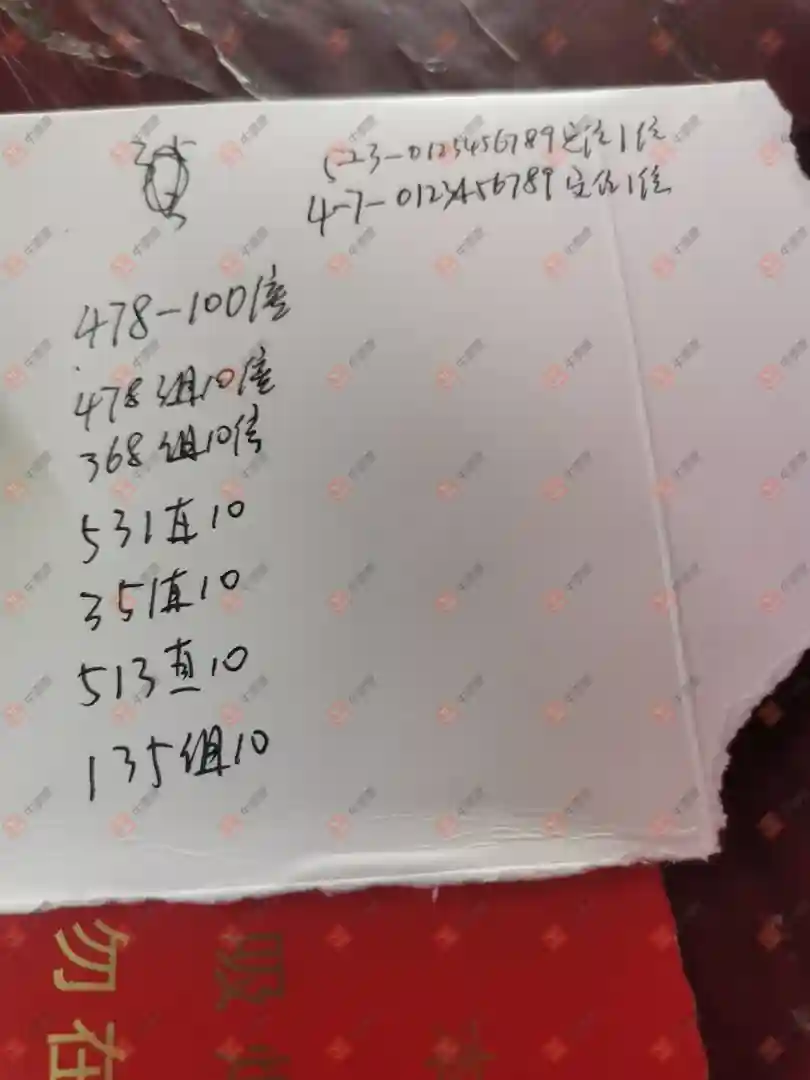 523-0123456789定位1倍
4-7-0123456789定位1倍
478-100倍
478组10倍
368组10倍
531直10
351直10
513直10
135组10
勿在
吸烟